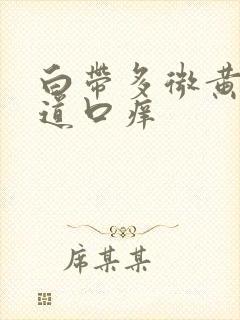 白带多微黄
道口痒
席某某